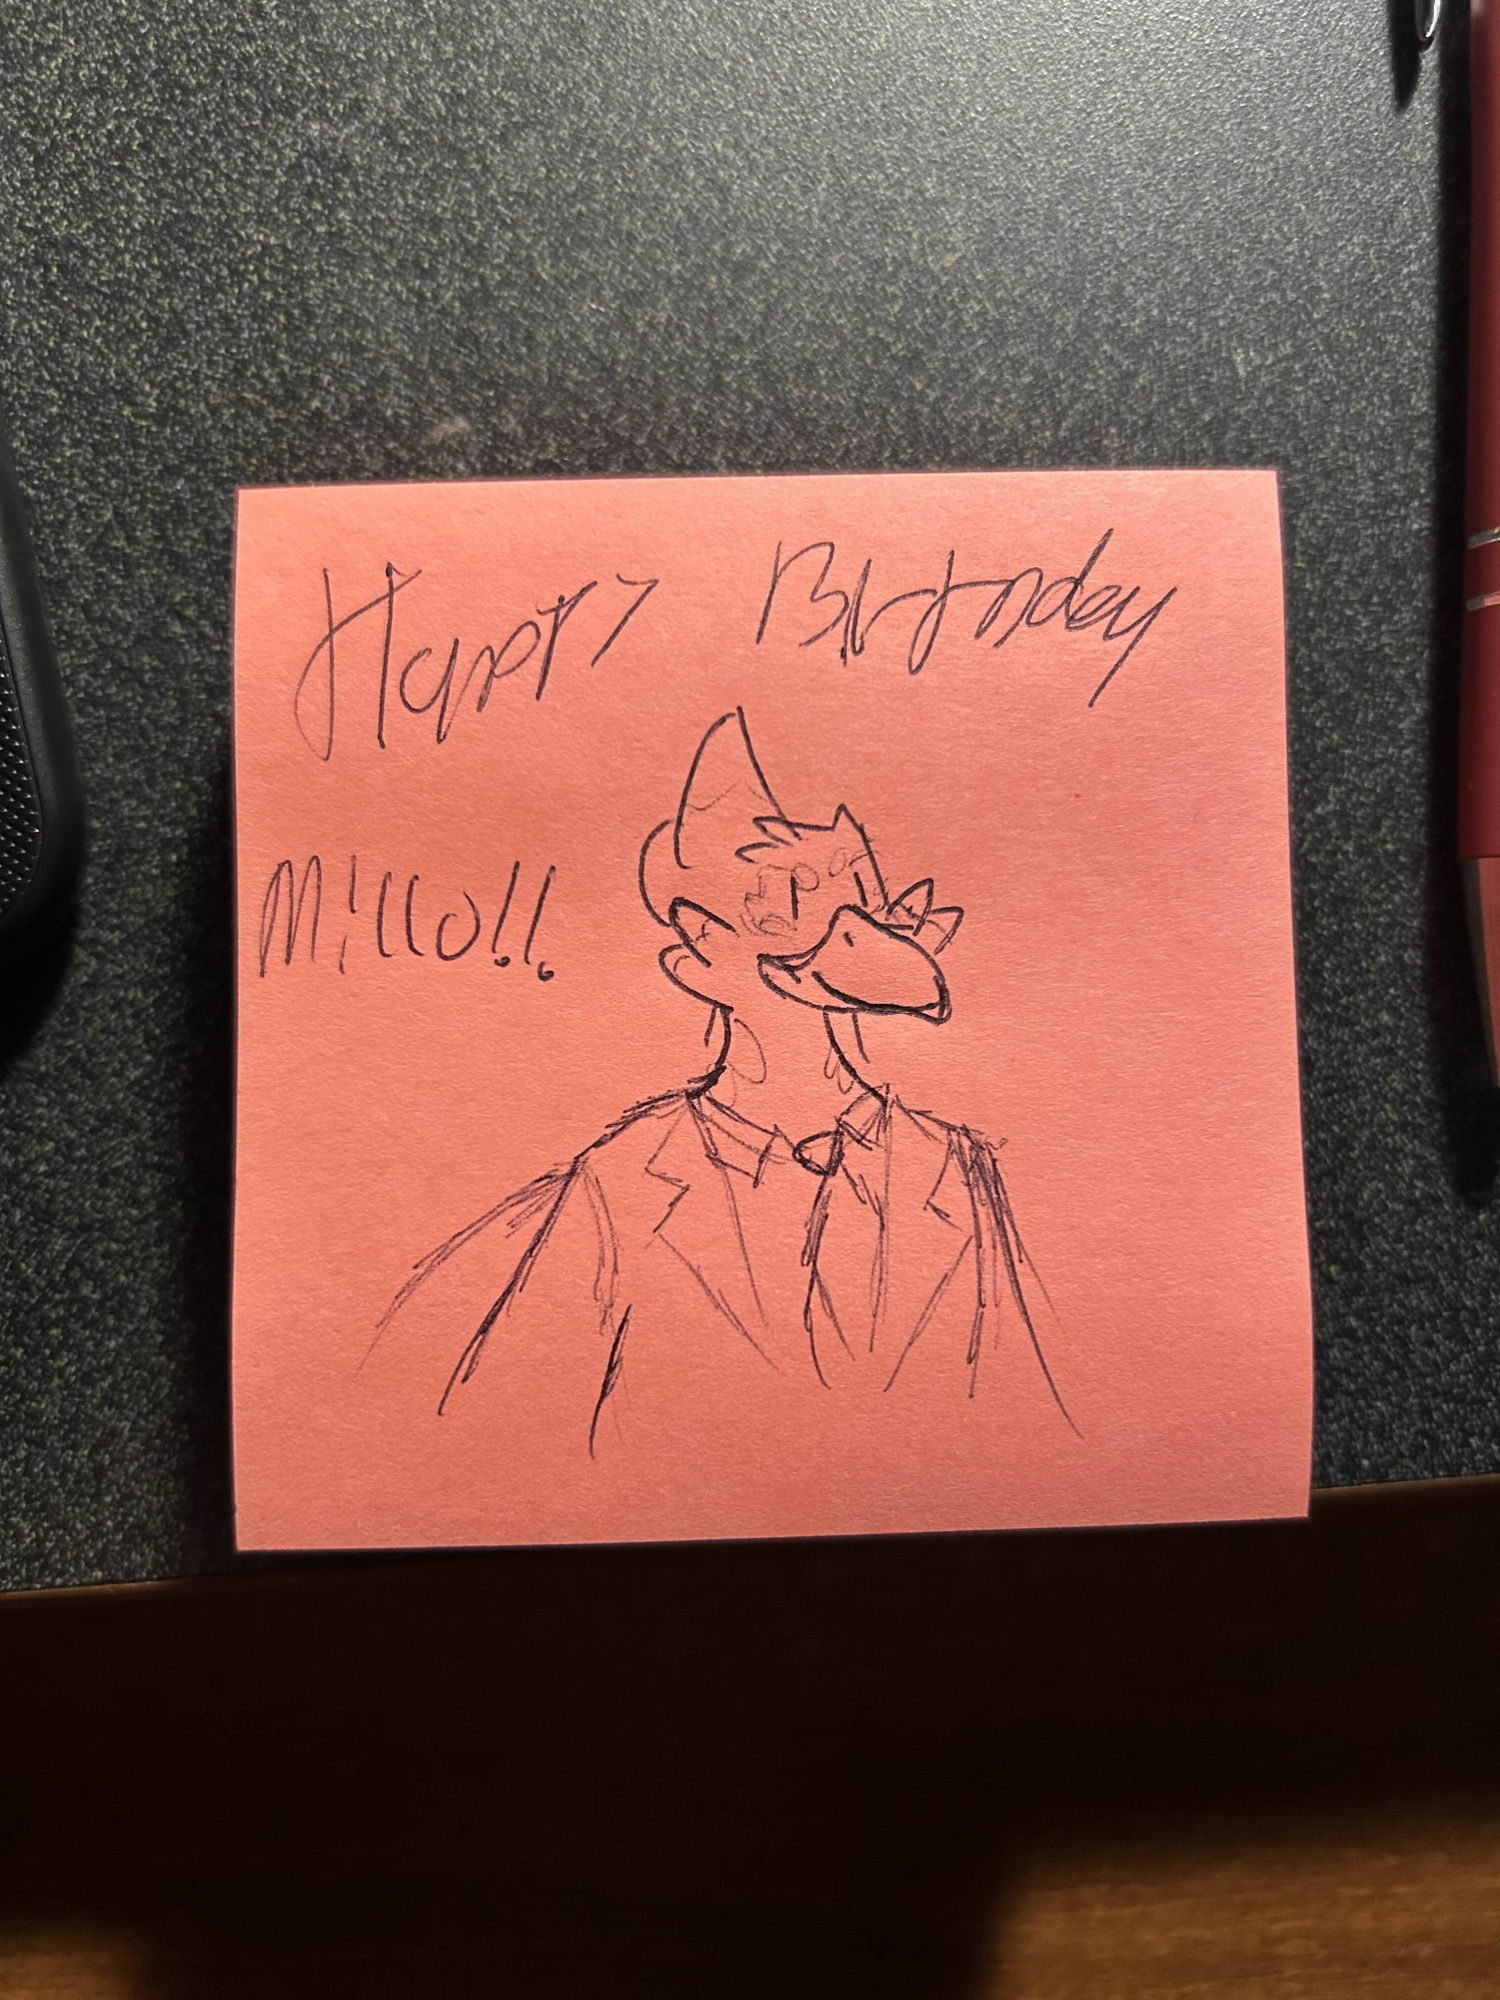 Happy Birthday
Millo!!